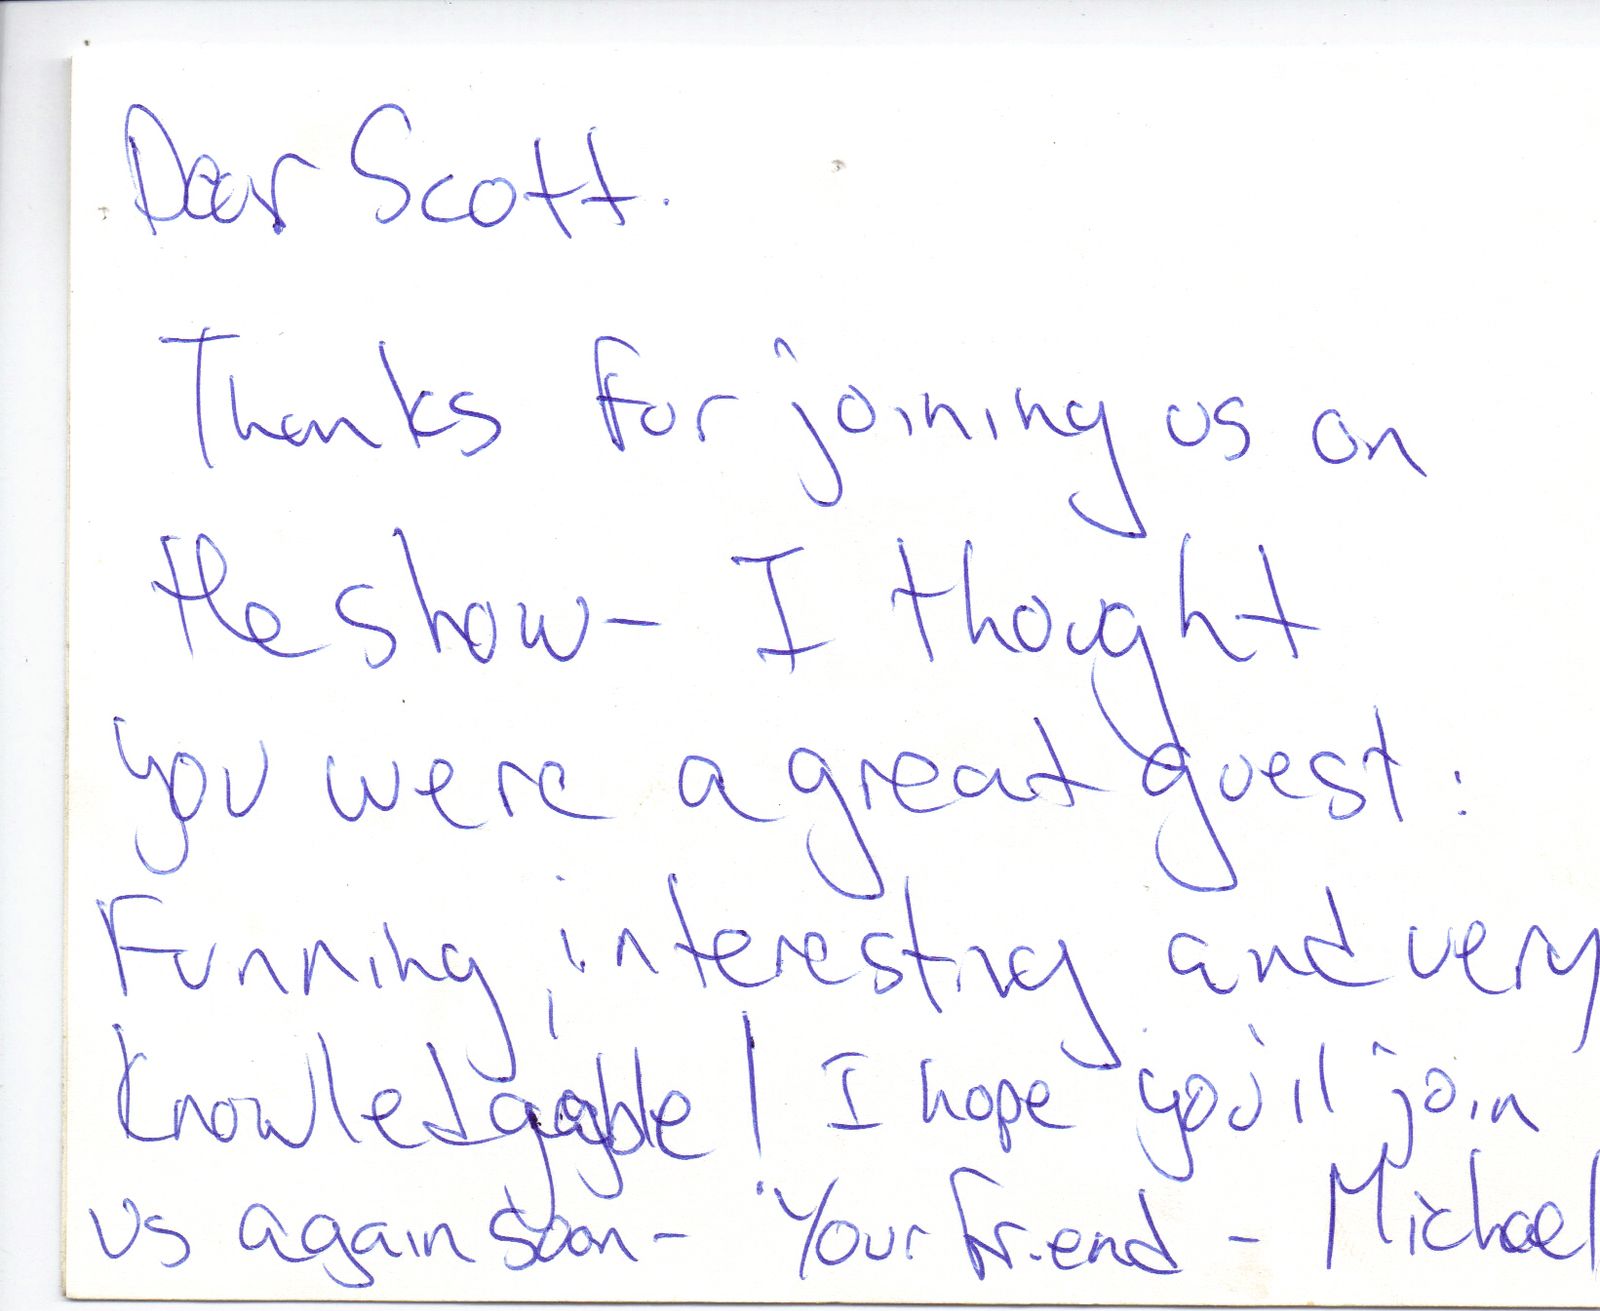 Dear Scott.
Thanks for joining us on
the show- I thought
you were a great guest:
Funning, interesting and very
knowledgable! I hope you'll join
us again soon- Your friend - Michael